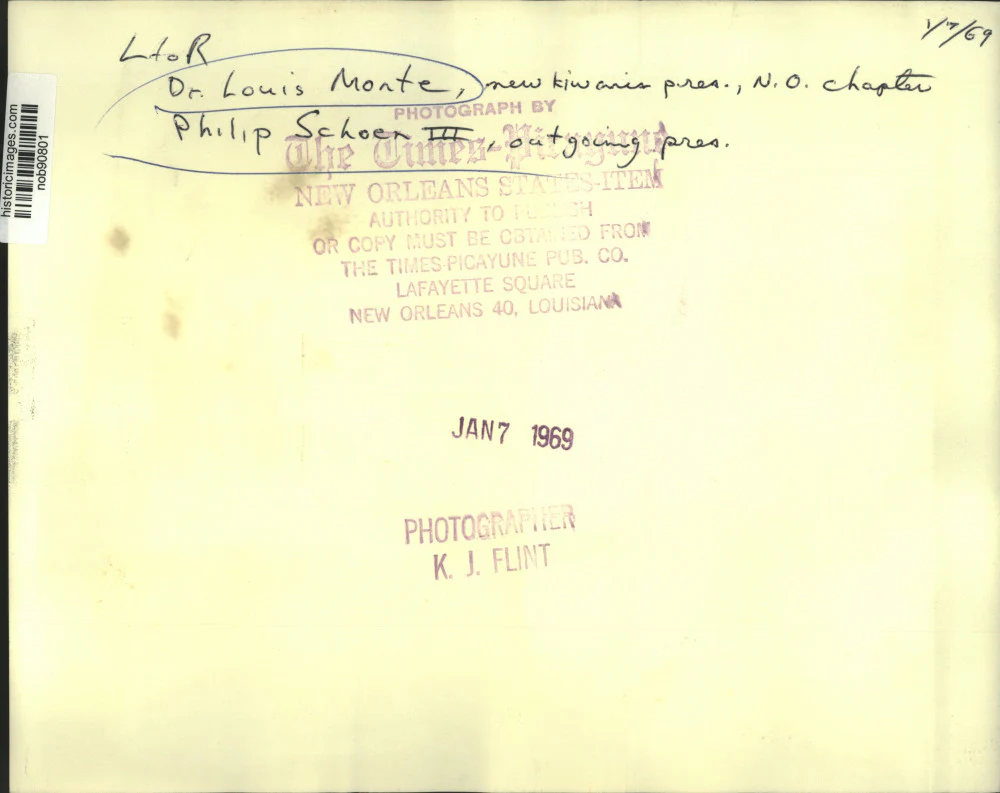 1/7/69
L to R
Dr. Louis Monte, new kiwanis pres., N.O. chapter
Philip Schoen III, outgoing pres.
PHOTOGRAPH BY
The Times-Picayune
NEW ORLEANS STATES-ITEM
AUTHORITY TO PUBLISH
OR COPY MUST BE OBTAINED FROM
THE TIMES-PICAYUNE PUB. CO.
LAFAYETTE SQUARE
NEW ORLEANS 40, LOUISIANA
JAN 7 1969
PHOTOGRAPHER
K. J. FLINT
historicimages.com
nob90801